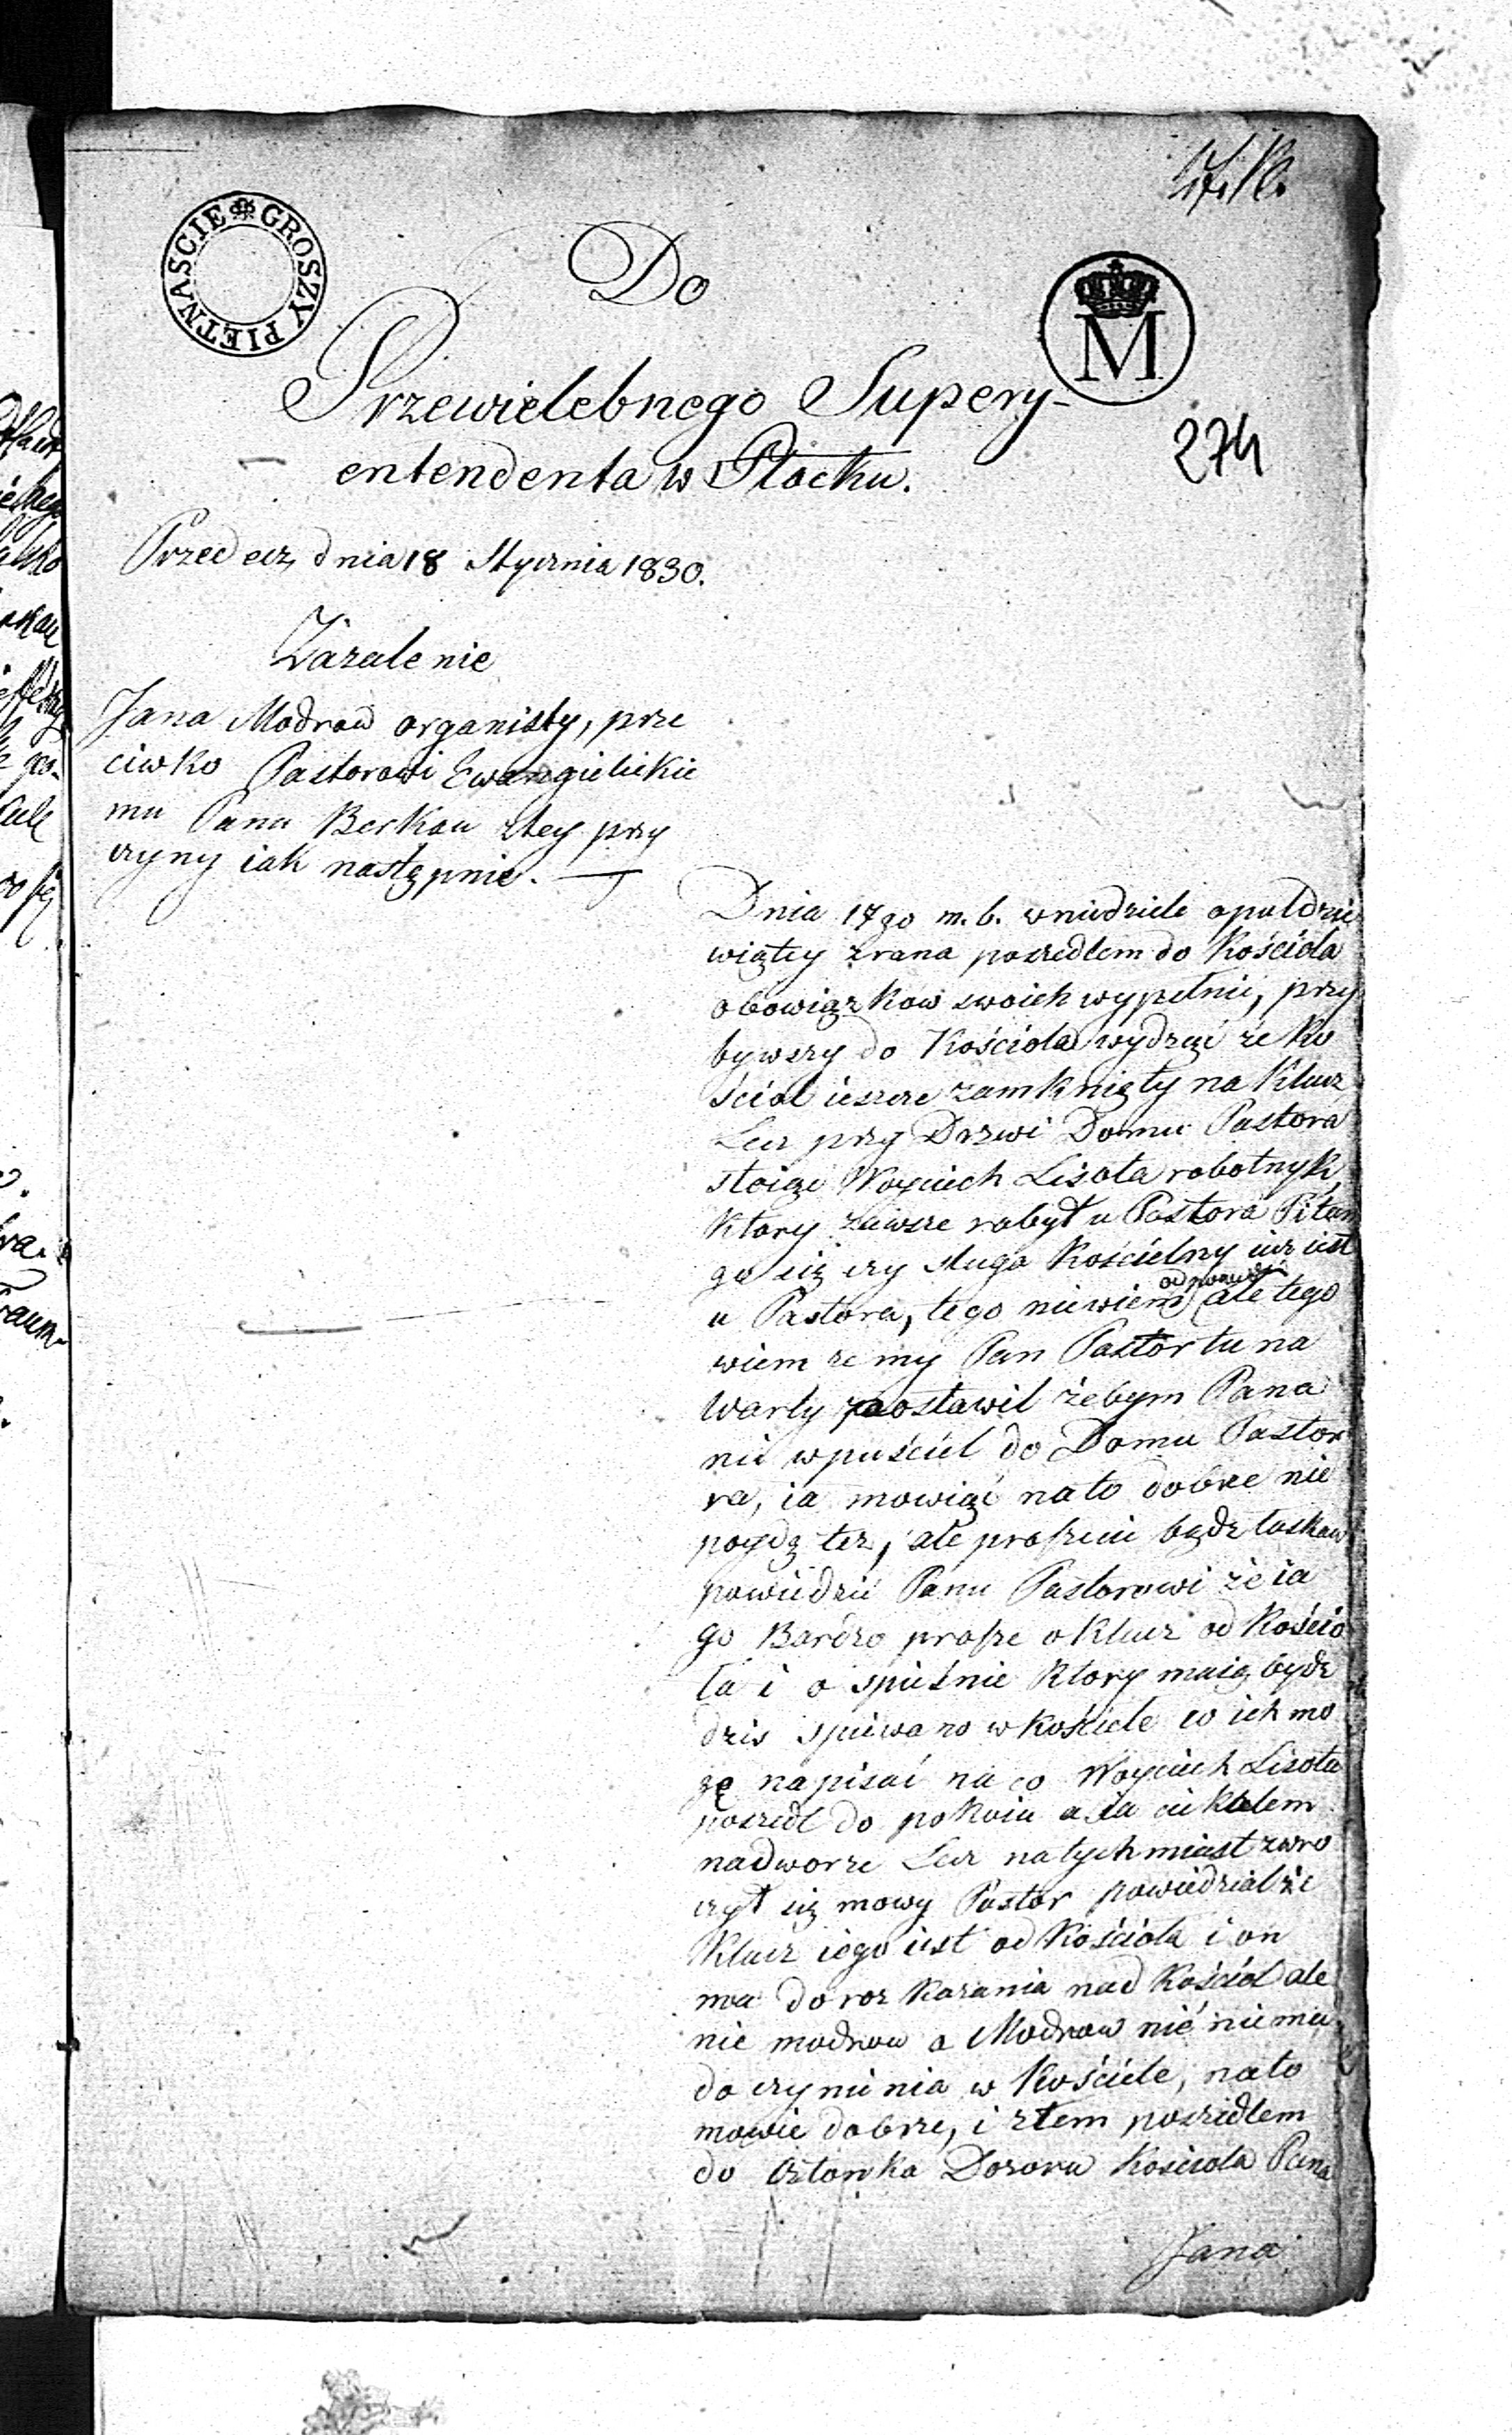 GROSZY PIETNASCIE
M
274
Do
Przewielebnego Supery-
entendenta w Płocku.
Przedecz dnia 18 Stycznia 1830.
Zazalenie
Jana Modrow organisty, prze
ciwko Pastorowi Ewangielickie
mu Panu Berkau ztey przy
czyny iak następnie.
Dnia 17go m. b. wniedziele opułdzie
wiątey zrana poszedłem do Kościoła
obowiązkow swoich wypełnić, przy
bywszy do Kościoła wydząć że ko
ściol ieszcze zamknięty na Klucz
Lecz przy Drzwi Domu Pastora
stoiąc Woyciech Lisota robotnyk,
Ktory zawsze robył u Pastora Pitam
go się czy sługa Kościelny iuz iest
odpowiedź
u Pastora, tego niewiem ale tego
wiem ze my Pan Pastor tu na
Warty postawil żebym Pana
nie wpuścil do Domu Pasto
ra, ia mowiąć nato dobrze nie
poydę tez, ale proszeie bądz łaskaw
powiedzić Panu Pastorowi że ia
go Bardzo prosze o Klucz od Kościo
ła i o spieśnie Ktory maią bydz
dzis spiewano w kościele co ich mo
gę napisać na co Woyciech Lisota
poszedł do pokoiu a ia cie kalem
nadworze Lecz natychmiast zwro
cył się mowy Pastor powiedział że
Klucz iego iest od Kościoła i on
ma do roz kazania nad Kościoł ale
nie modrow a Modrow nić niema
do czynienia w Kościele, nato
mowie dobrze, i ztem poszedłem
do Członka Dozoru Kościoła Pana
Jana